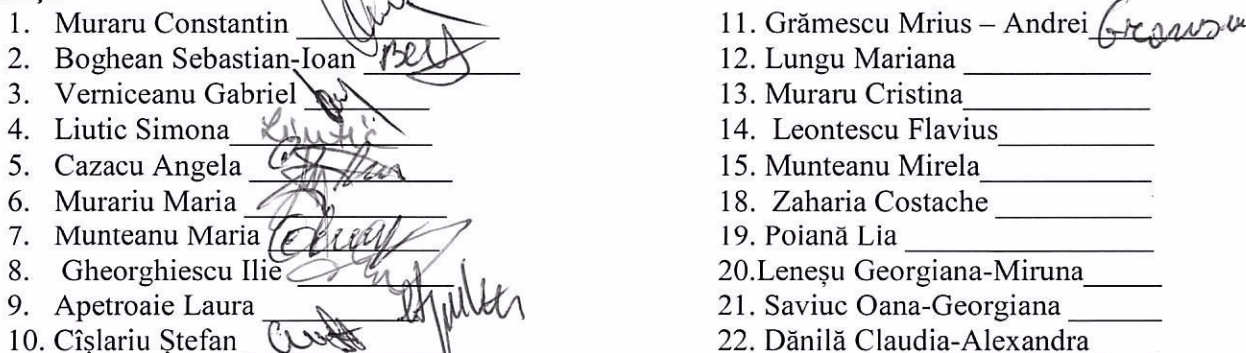 1. Muraru Constantin
2. Boghean Sebastian-Ioan
3. Verniceanu Gabriel
4. Liutic Simona Liutic
5. Cazacu Angela
6. Murariu Maria
7. Munteanu Maria
8. Gheorghiescu Ilie
9. Apetroaie Laura
10. Cîșlariu Ștefan
11. Grămescu Mrius – Andrei
12. Lungu Mariana
13. Muraru Cristina
14. Leontescu Flavius
15. Munteanu Mirela
18. Zaharia Costache
19. Poiană Lia
20.Leneșu Georgiana-Miruna
21. Saviuc Oana-Georgiana
22. Dănilă Claudia-Alexandra